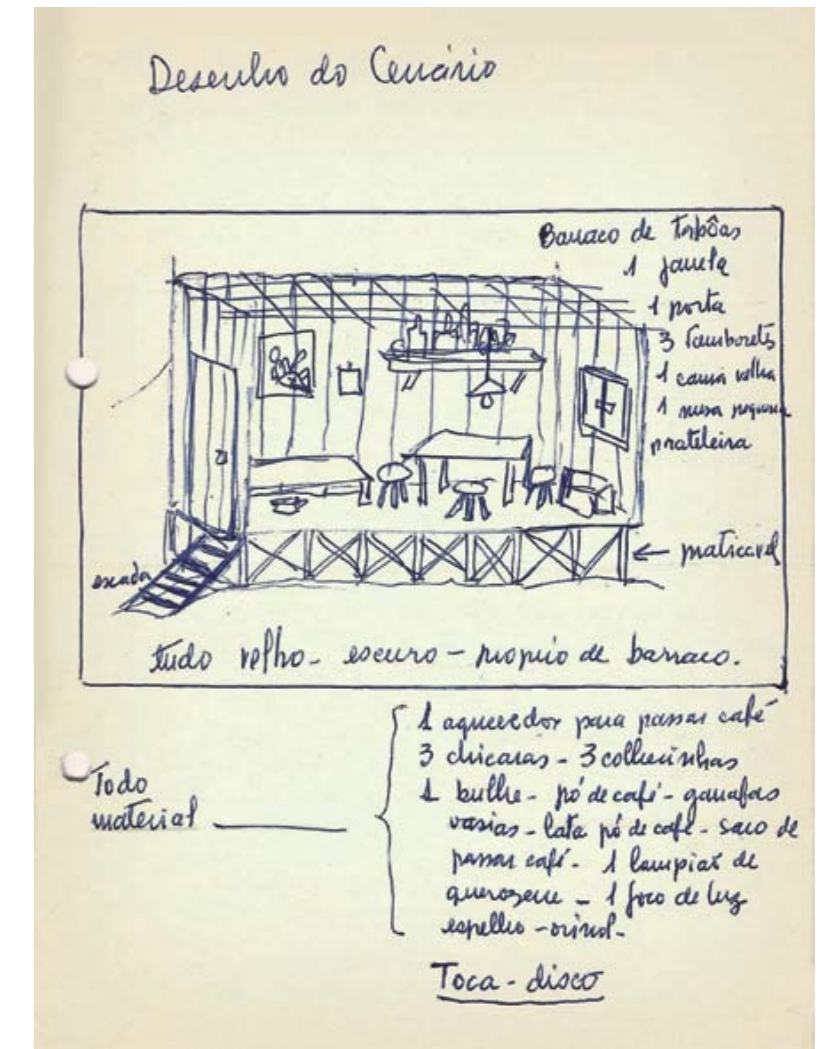 Desenho do Cenário
Barraco de tabôas
1 janela
1 porta
3 tamboretes
1 cama velha
1 mesa pequena
prateleira
praticavel
escada
tudo velho - escuro - proprio de barraco.
Todo
material
1 aquecedor para passar café
3 chicaras - 3 colherinhas
1 bulhe - pó de café - garrafas
vasias - lata pó de café - saco de
passar café - 1 lampião de
querozene - 1 foco de luz
espelho - orinol -
Toca-disco